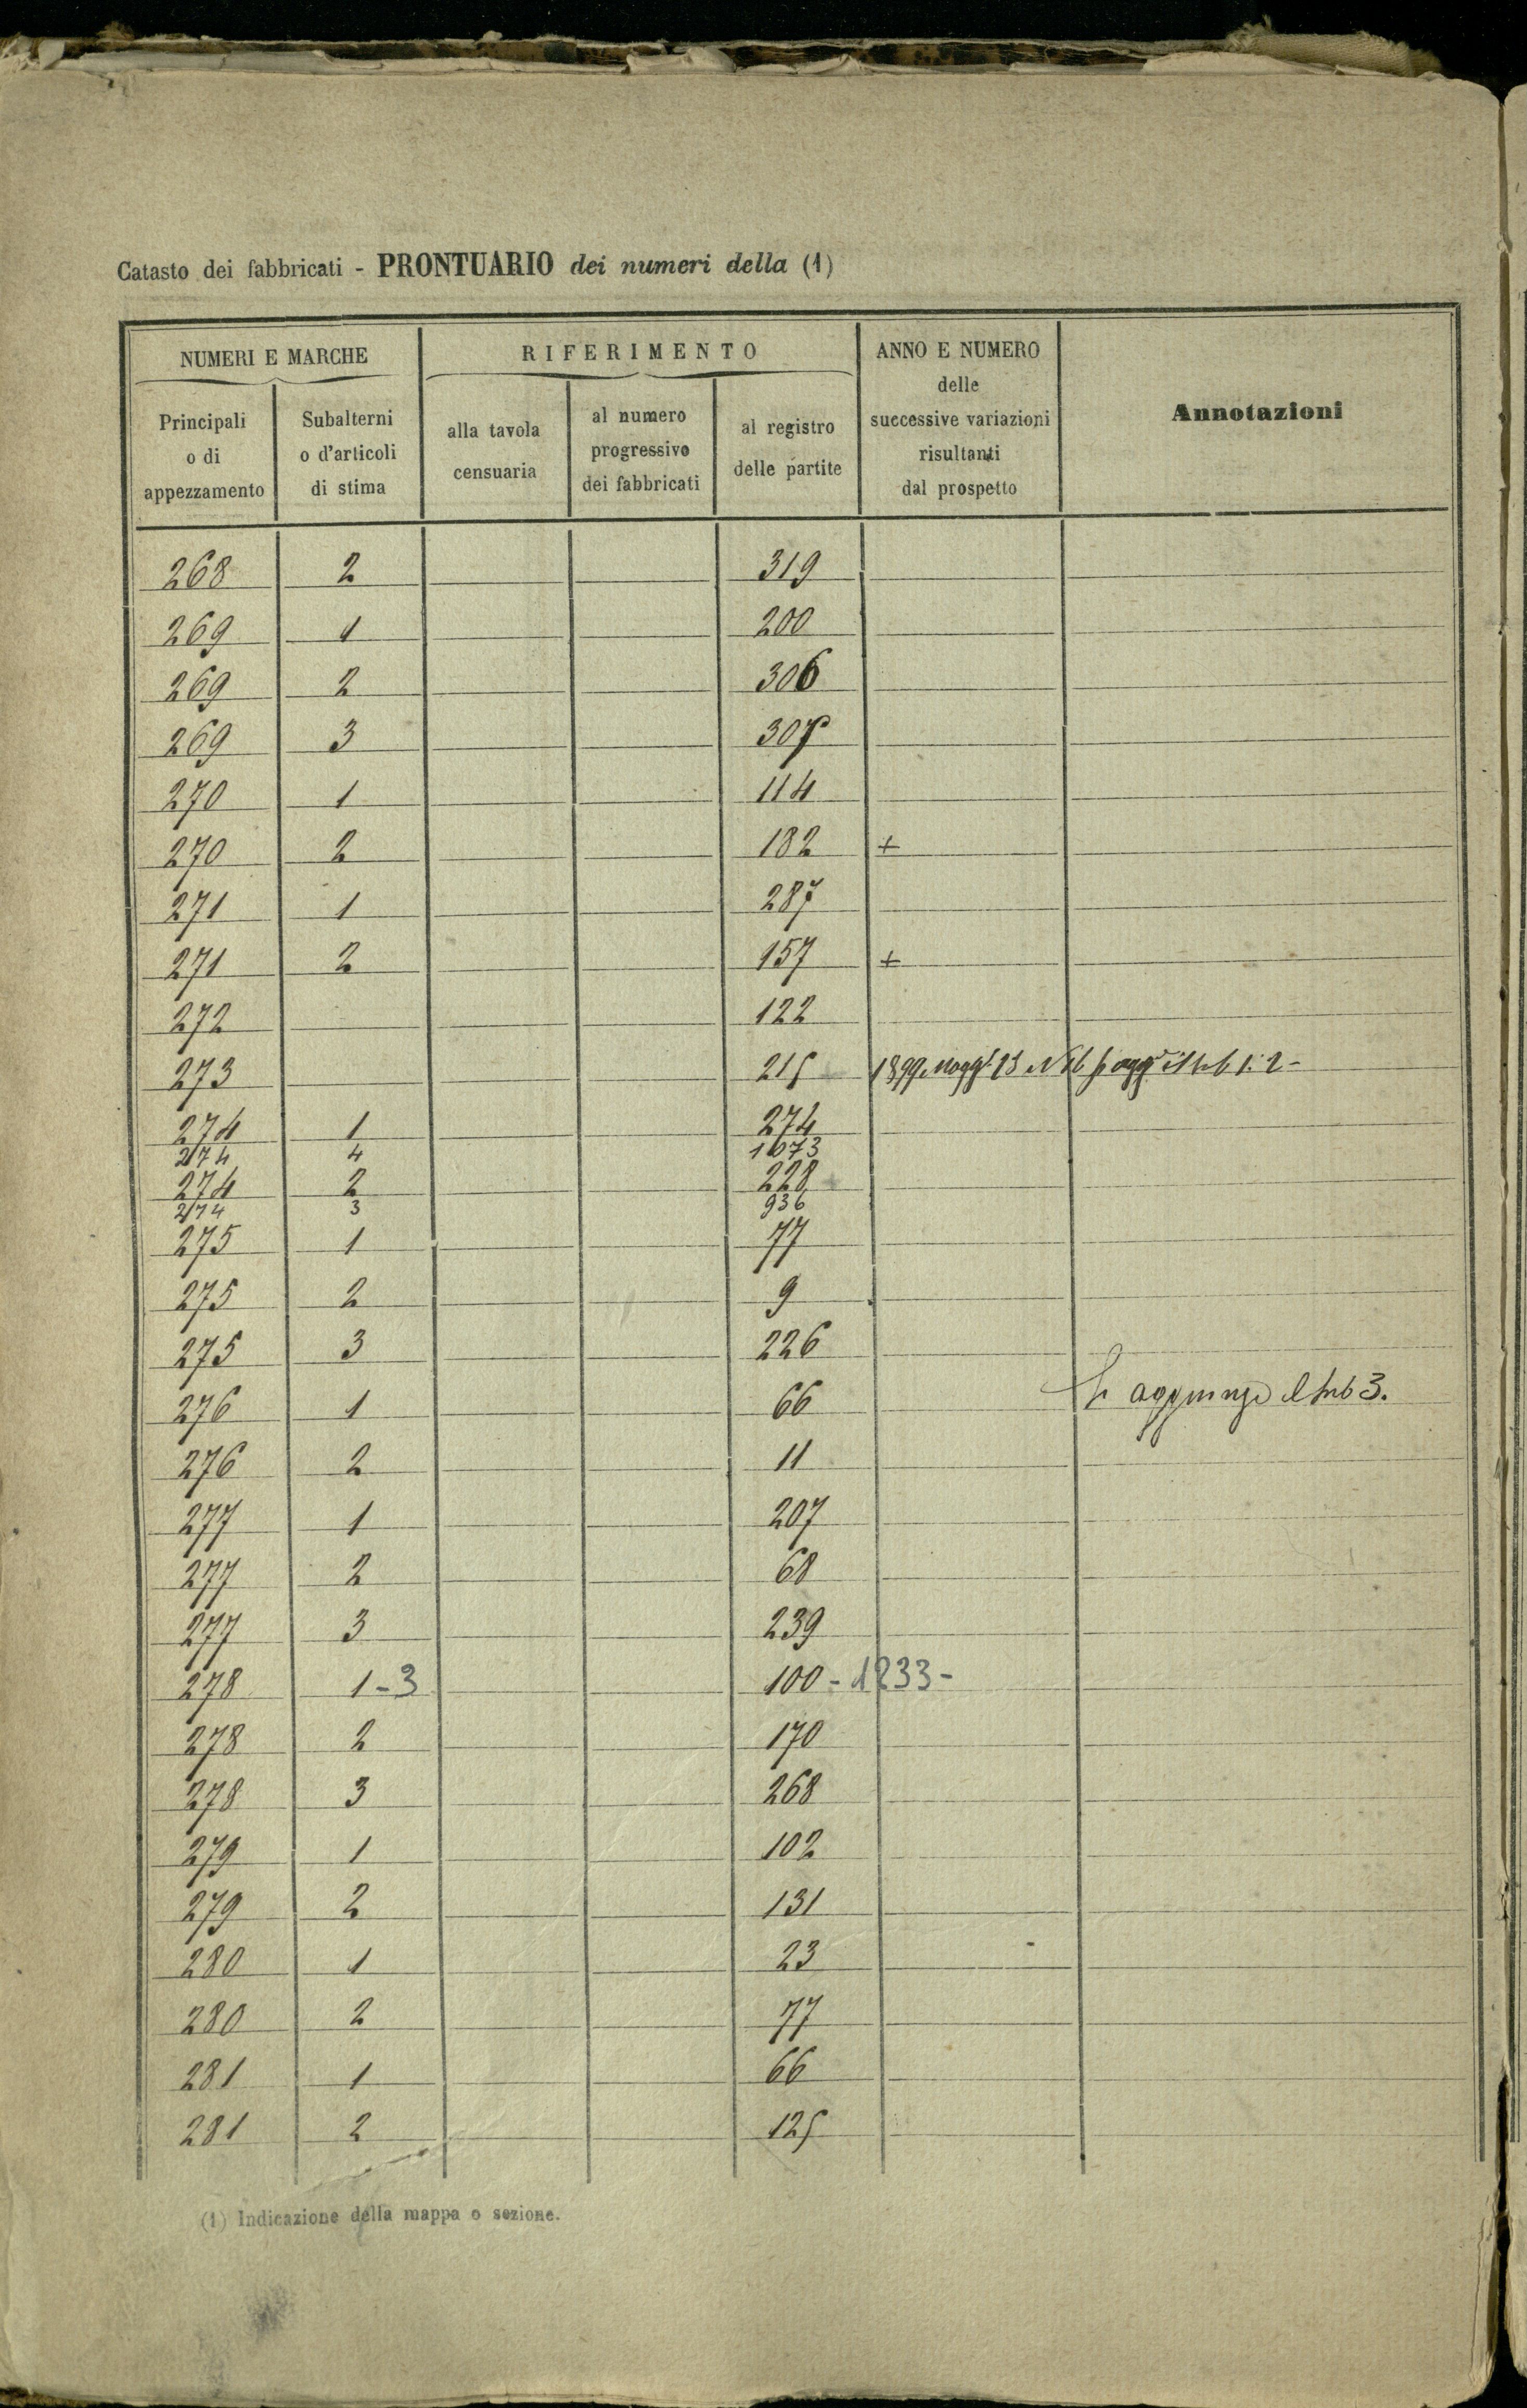 Catasto dei fabbricati - PRONTUARIO dei numeri della (1)
NUMERI E MARCHE RIFERIMENTO ANNO E NUMERO delle successive variazioni risultanti dal prospetto Annotazioni
Principali o di appezzamento Subalterni o d'articoli di stima alla tavola censuaria al numero progressivo dei fabbricati al registro delle partite
268 2 319
269 1 200
269 2 306
269 3 307
270 1 114
270 2 182 +
271 1 287
271 2 157 +
272 122
273 215 1899 N 16 sub 1: 2 -
274 1 274
274 4 1073
274 2 228
274 3 936
275 1 77
275 2 9
275 3 226
276 1 66 Si aggiunge il sub 3.
276 2 11
277 1 207
277 2 68
277 3 239
278 1 - 3 100 - 1233 -
278 2 170
278 3 268
279 1 102
279 2 131
280 1 23
280 2 77
281 1 66
281 2 125
(1) Indicazione della mappa o sezione.